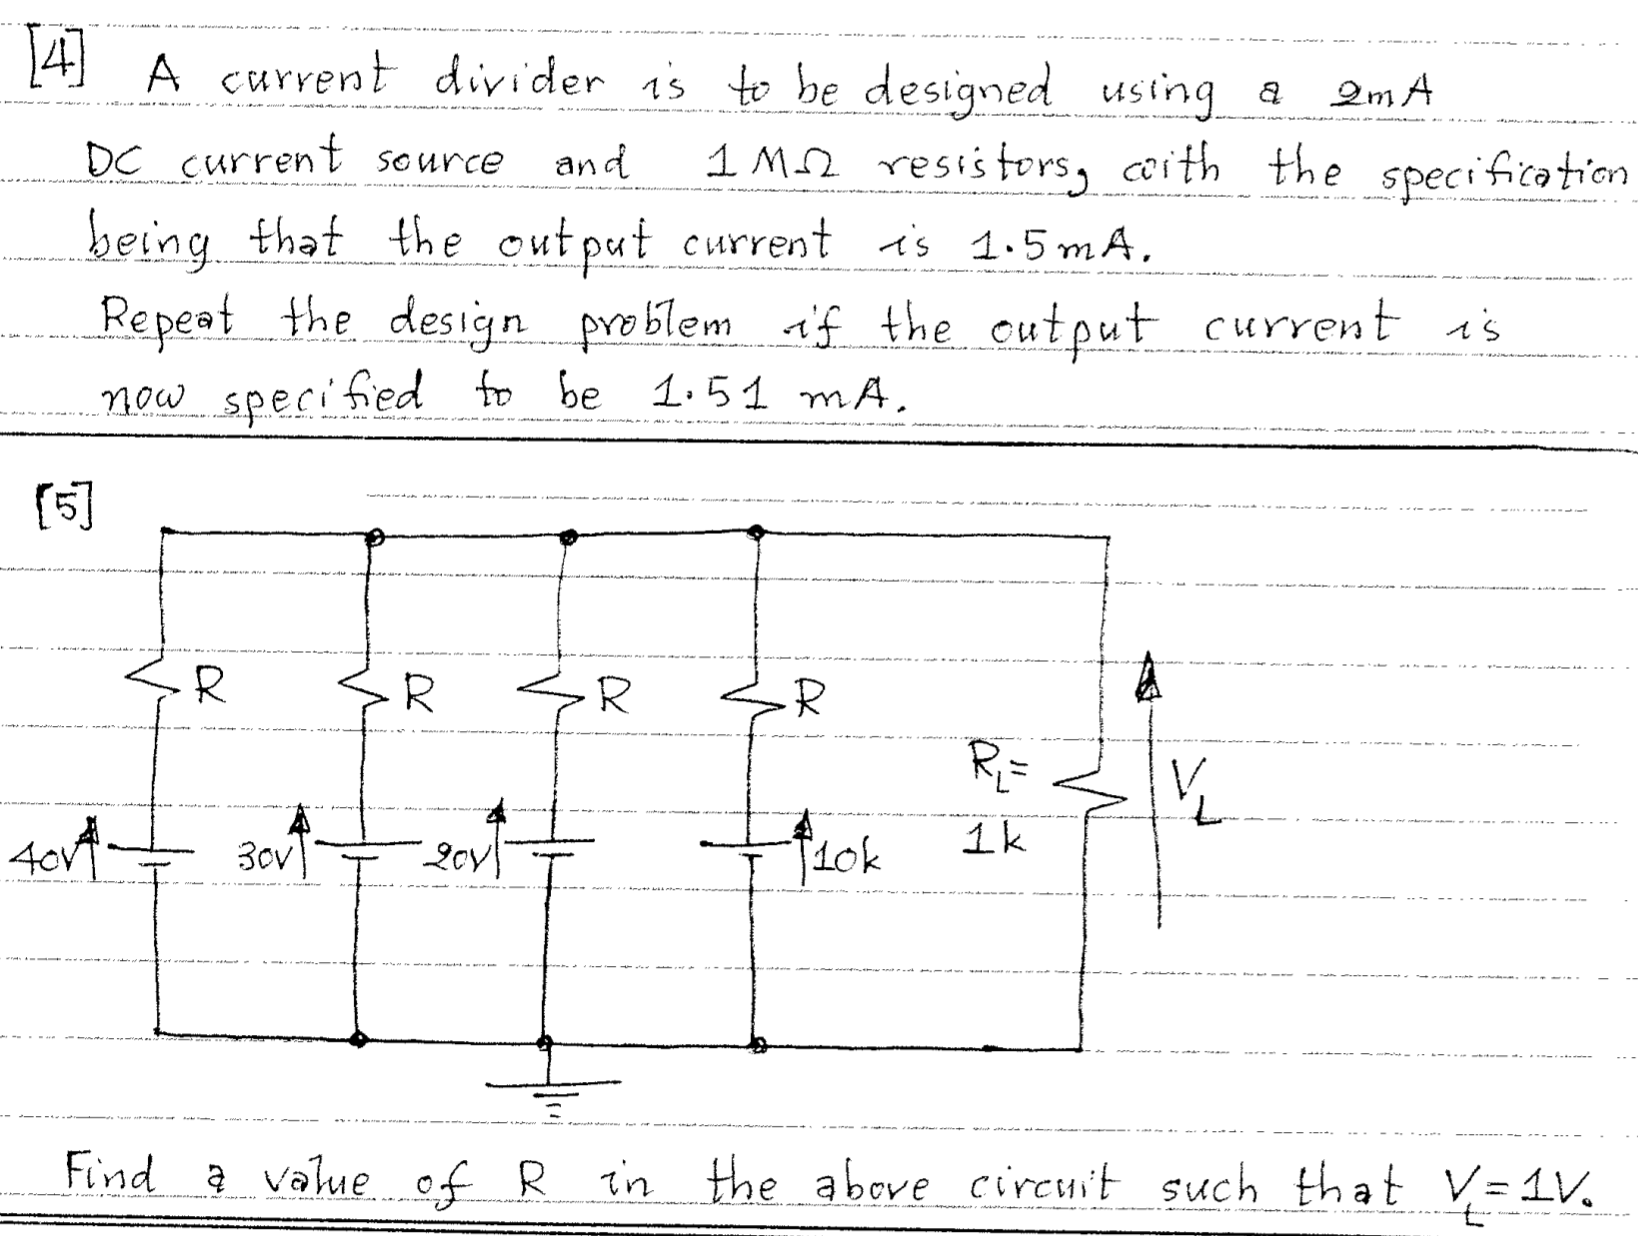 [4] A current divider is to be designed using a 2mA
DC current source and 1 MΩ resistors, with the specification
being that the output current is 1.5mA.
Repeat the design problem if the output current is
now specified to be 1.51 mA.
[5]
R R R R
R_L=
1k
V_L
40V 30V 20V 10k
Find a value of R in the above circuit such that V_L=1V.